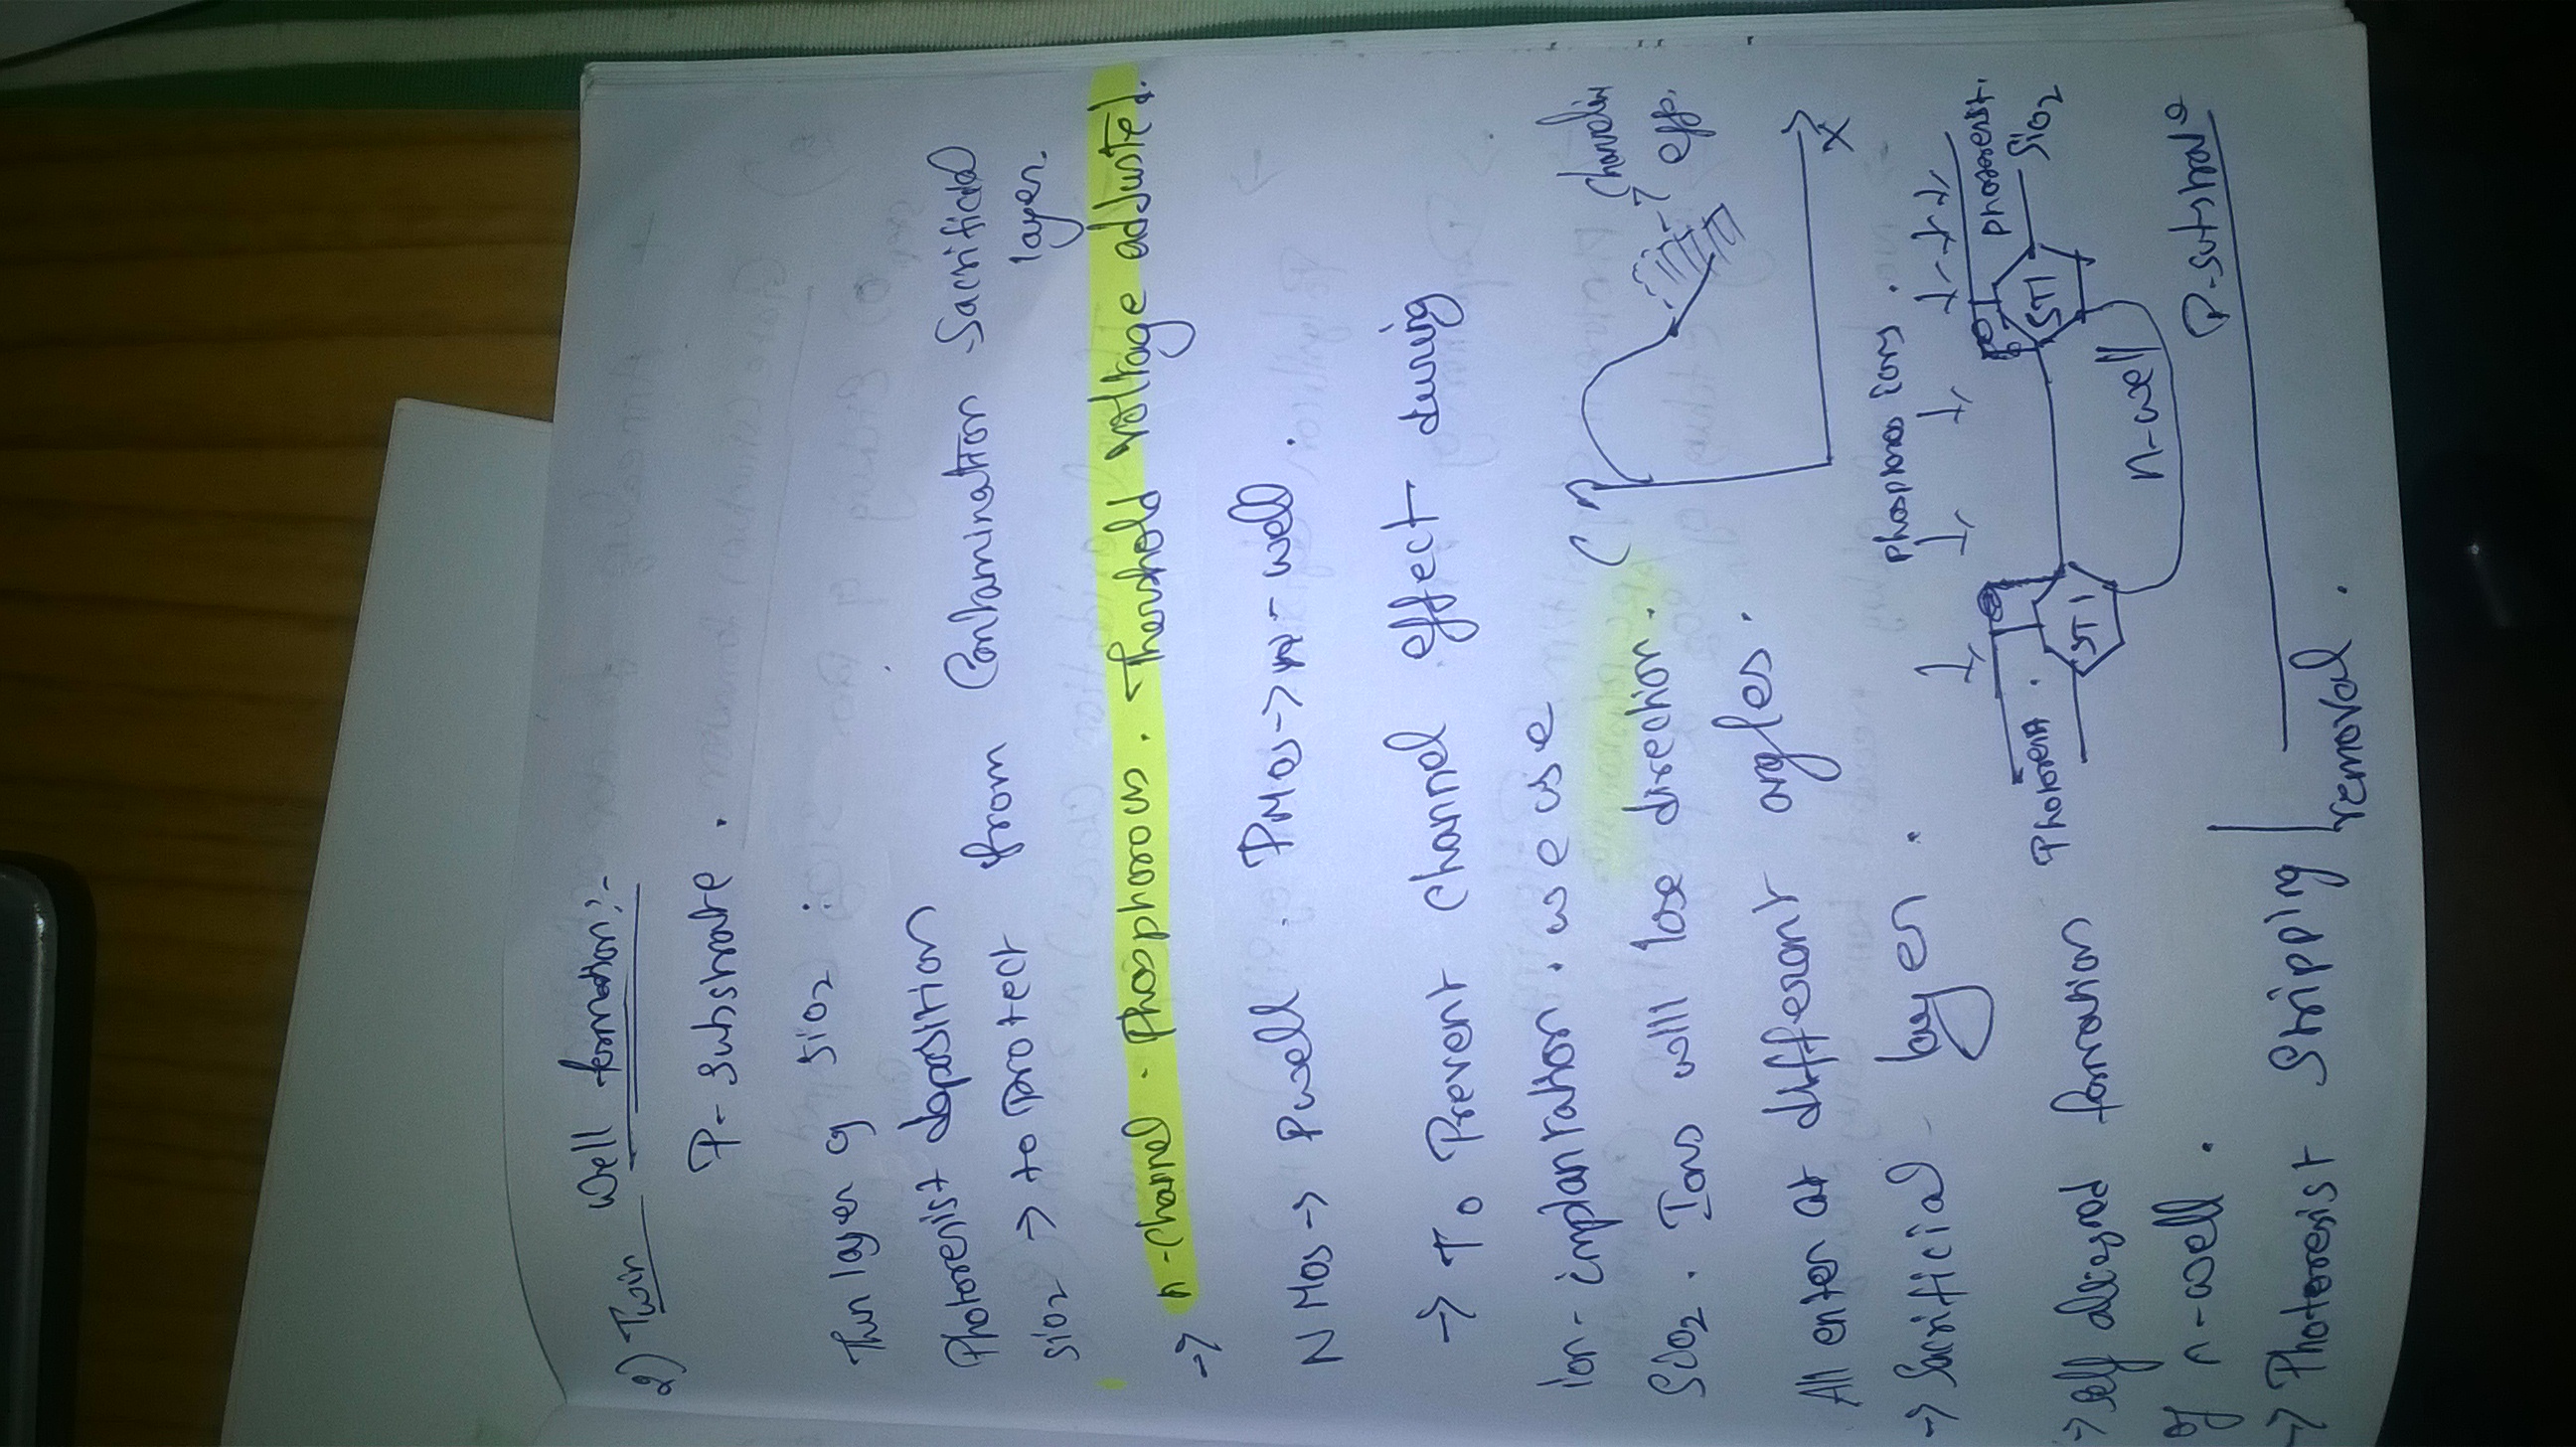 2) Twin Well formation:-
P- Substrate .
Thin layer of SiO2 :
Photoresist deposition
SiO2 → to Protect from Contamination Sacrificial
layer.
→ n-channel . Phosphorous . Thershold Voltage addusted.
NMos → Pwell . PMos → n-well .
→ To Prevent channel effect during
ion-implantation . we use
SiO2 . Ions will lose direction .
C
Channelin
eff.
All enter at different angles .
X
→ Sacrificial layer .
phosphoros ions .
Photoresist.
photoresist.
SiO2
STI
STI
→ self aligned formation
n-well
of n-well .
P-substrate
→ Photoresist Stripping |
removal .